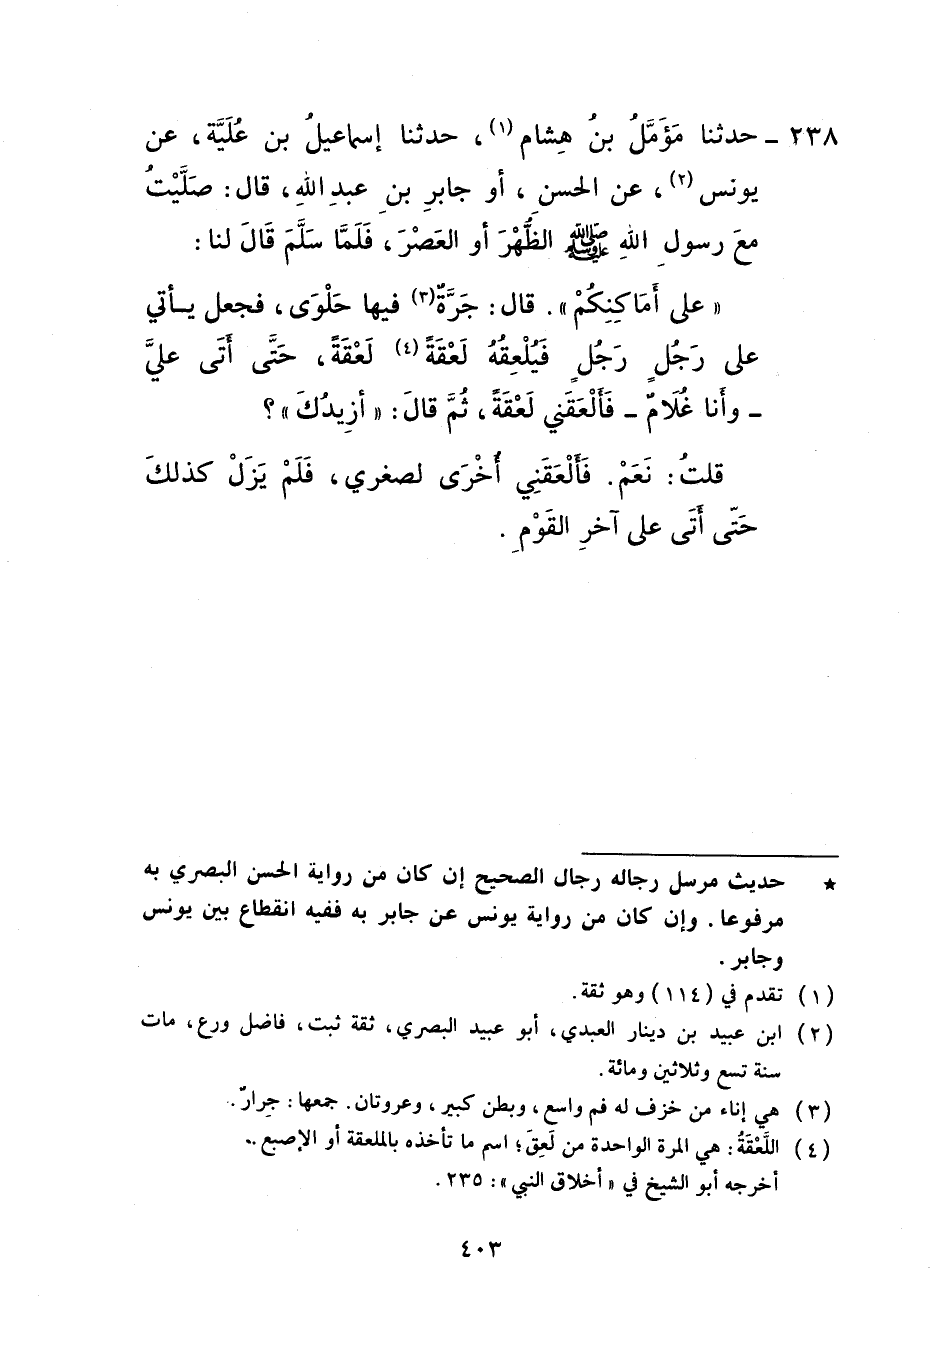 ٢٣٨ ـ حدثنا مَؤَمَّلُ بنُ هِشام(١)، حدثنا إسماعيلُ بن عُلَيَّة، عن
يونس(٢)، عن الحسنِ، أو جابرِ بنِ عبدِ اللهِ، قال: صَلَّيْتُ
معَ رسولِ اللهِ ﷺ الظُّهْرَ أو العَصْرَ، فَلَمَّا سَلَّمَ قَالَ لنا:
« على أَمَاكِنِكُمْ ». قال: جَرَّةٌ(٣) فيها حَلْوَى، فجعل يـأتي
على رَجُلٍ رَجُلٍ فَيُلْعِقُهُ لَعْقَةً(٤) لَعْقَةً، حَتَّى أَتَى عليَّ
ـ وأنا غُلَامٌ ـ فَأَلْعَقَني لَعْقَةً، ثُمَّ قالَ: « أزِيدُكَ »؟
قلتُ: نَعَمْ. فَأَلْعَقَنِي أُخْرَى لصغري، فَلَمْ يَزَلْ كذلكَ
حَتّى أَتَى على آخرِ القَوْمِ.
★ حديث مرسل رجاله رجال الصحيح إن كان من رواية الحسن البصري به
مرفوعا. وإن كان من رواية يونس عن جابر به ففيه انقطاع بين يونس
وجابر.
(١) تقدم في (١١٤) وهو ثقة.
(٢) ابن عبيد بن دينار العبدي، أبو عبيد البصري، ثقة ثبت، فاضل ورع، مات
سنة تسع وثلاثين ومائة.
(٣) هي إناء من خزف له فم واسع، وبطن كبير، وعروتان. جمعها: جِرارٌ.
(٤) اللَّعْقَةُ: هي المرة الواحدة من لَعِقَ؛ اسم ما تأخذه بالملعقة أو الإصبع..
أخرجه أبو الشيخ في « أخلاق النبي »: ٢٣٥.
٤٠٣